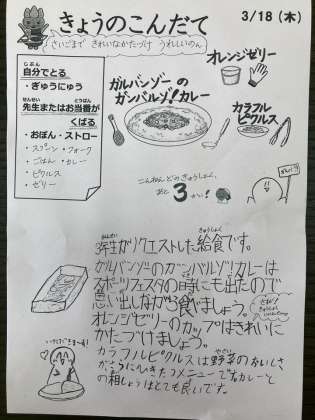 きょうのこんだて
3/18(木)
さいごまで きれいなかたづけ うれしいのん
自分でとる
じぶん
・ぎゅうにゅう
先生またはお当番が
せんせい とうばん
くばる
・おぼん・ストロー
・スプーン・フォーク
・ごはん・カレー
・ピクルス
・ゼリー
ガルバンゾーの
ガンバルゾ!カレー
オレンジゼリー
カラフル
ピクルス
こんねんどのきゅうしょく、
あと3かい!
ガンバレ
3年生がリクエストした給食です。
ねんせい きゅうしょく
ガルバンゾーのガンバルゾ!カレーは
スポーツフェスタの時にも出たので
思い出しながら食べましょう。
オレンジゼリーのカップはきれいに
かたづけましょう。
カラフルピクルスは野菜のおいしさ
やさい
メニューですカレーと
の相しょうはとても良いです。
いただきまーす!